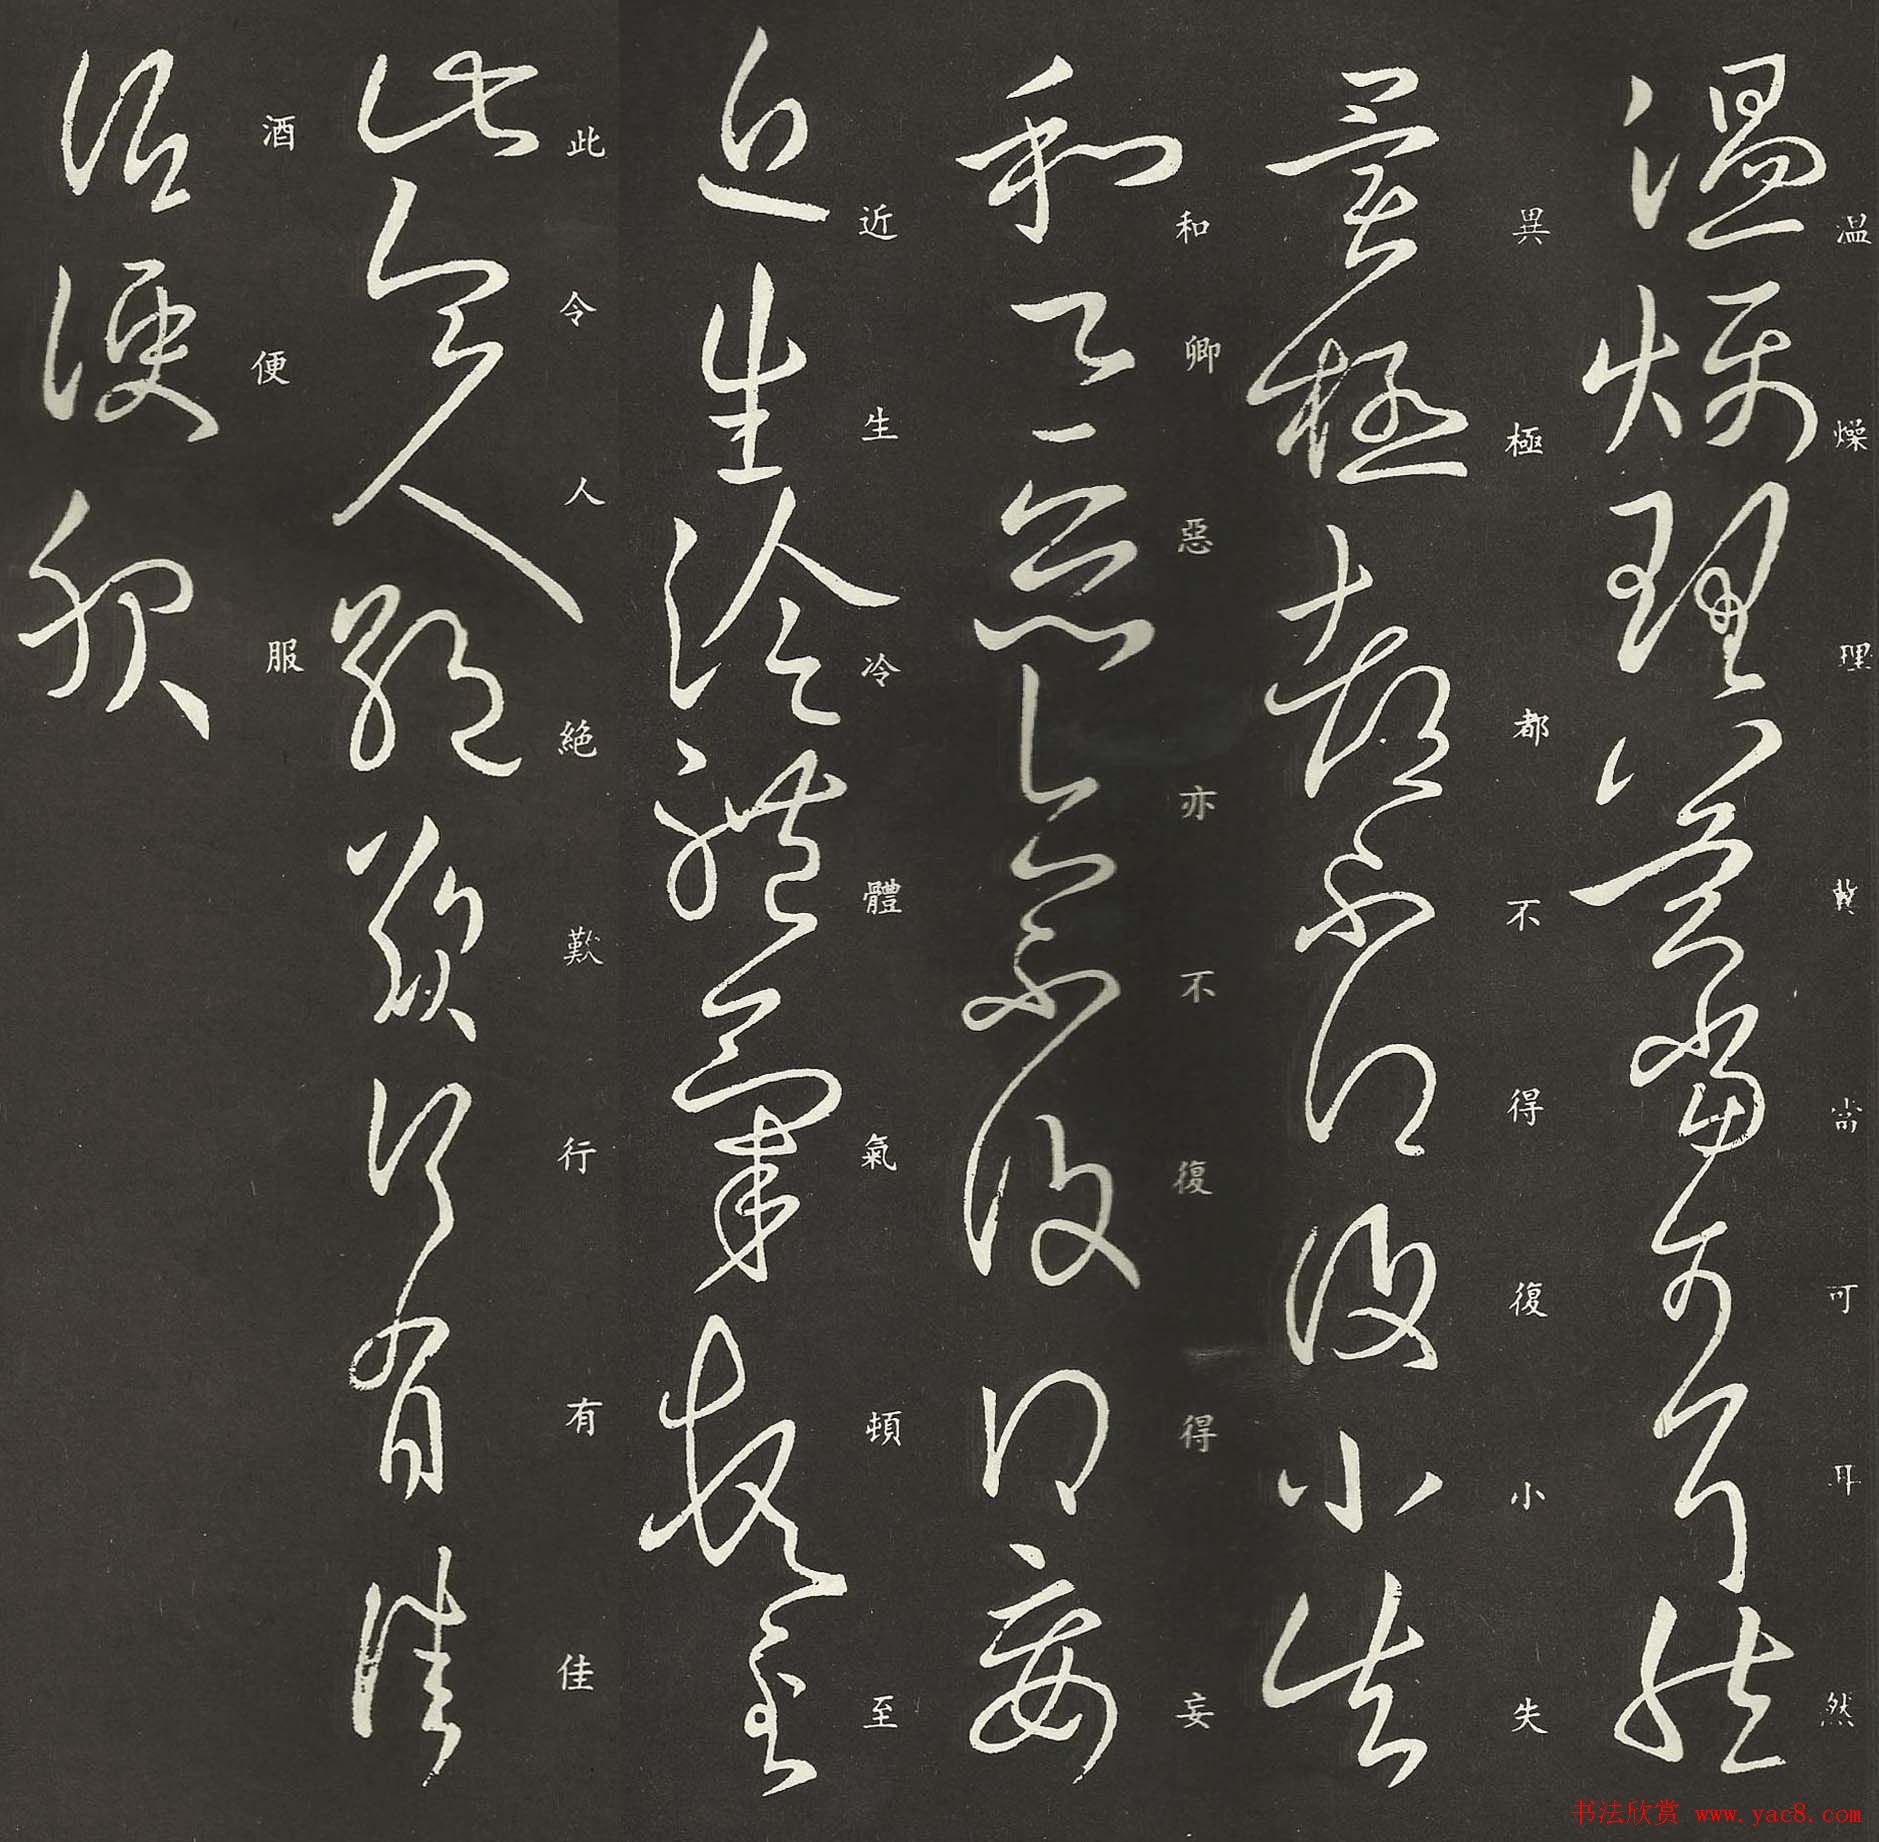 温燥理冀當可耳然
異極都不得復小失
和卿惡亦不復得妄
近生冷體氣頓至
此令人絶歎行有佳
酒便服
书法欣赏 www.yac8.com